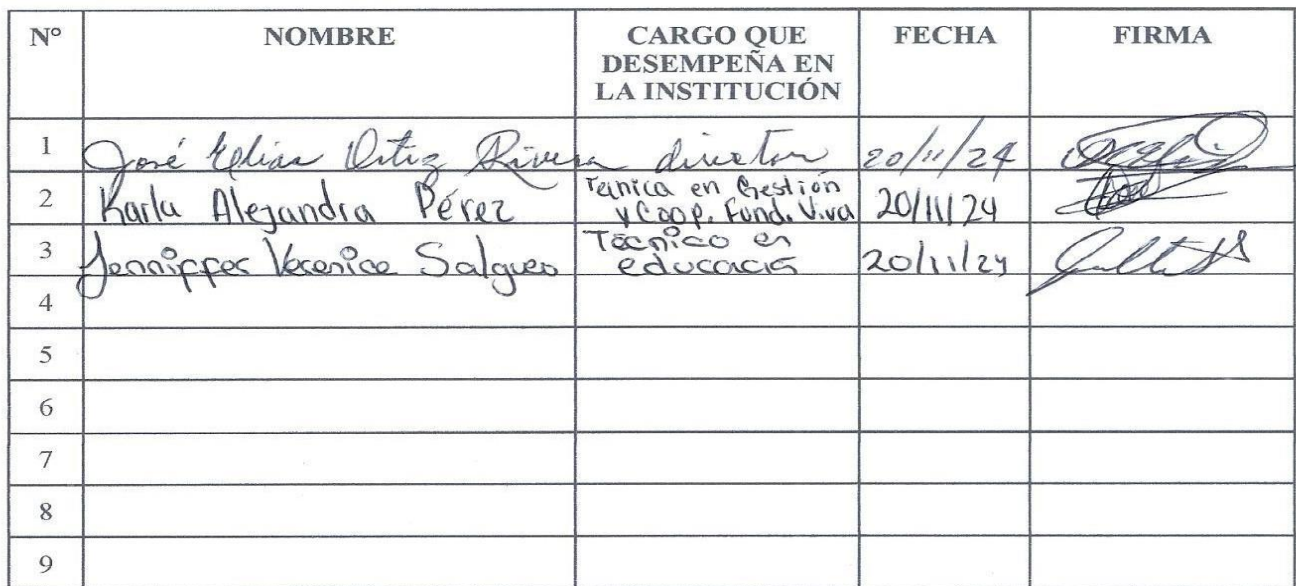 N° NOMBRE CARGO QUE DESEMPEÑA EN LA INSTITUCIÓN FECHA FIRMA
1 José Elías Ortiz Rivera director 20/11/24
2 Karla Alejandra Pérez Tecnica en Gestión y Coop. Fund. Viva 20/11/24
3 Jenniffer Veronice Salguero Técnico en educación 20/11/24
4
5
6
7
8
9